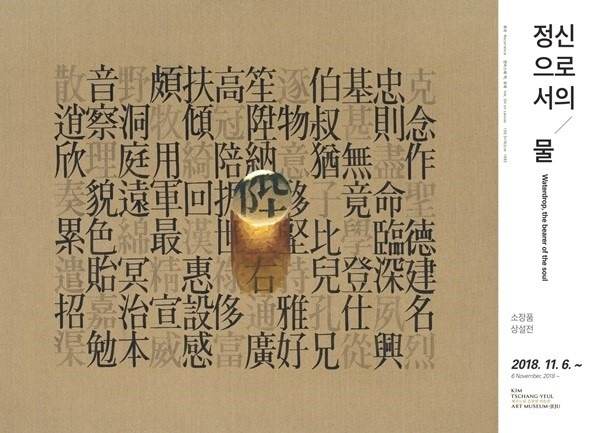 克念作聖德建名烈
忠則盡命臨深夙興
基甚無竟學登仕從
伯叔猶子比兒孔兄
逐物意移堅持雅好
笙陞納陛右通廣
高冠陪世侈富
扶傾綺回漢惠設感
頗牧用軍最精宣威
野洞庭遠綿冥治本
音察理貌色貽嘉勉
散逍欣奏累遣招渠
정신
으로
서의
물
Waterdrop, the bearer of the soul
소장품
상설전
2018. 11. 6. ~
6 November, 2018 ~
KIM
TSCHANG-YEUL
ART MUSEUM·JEJU